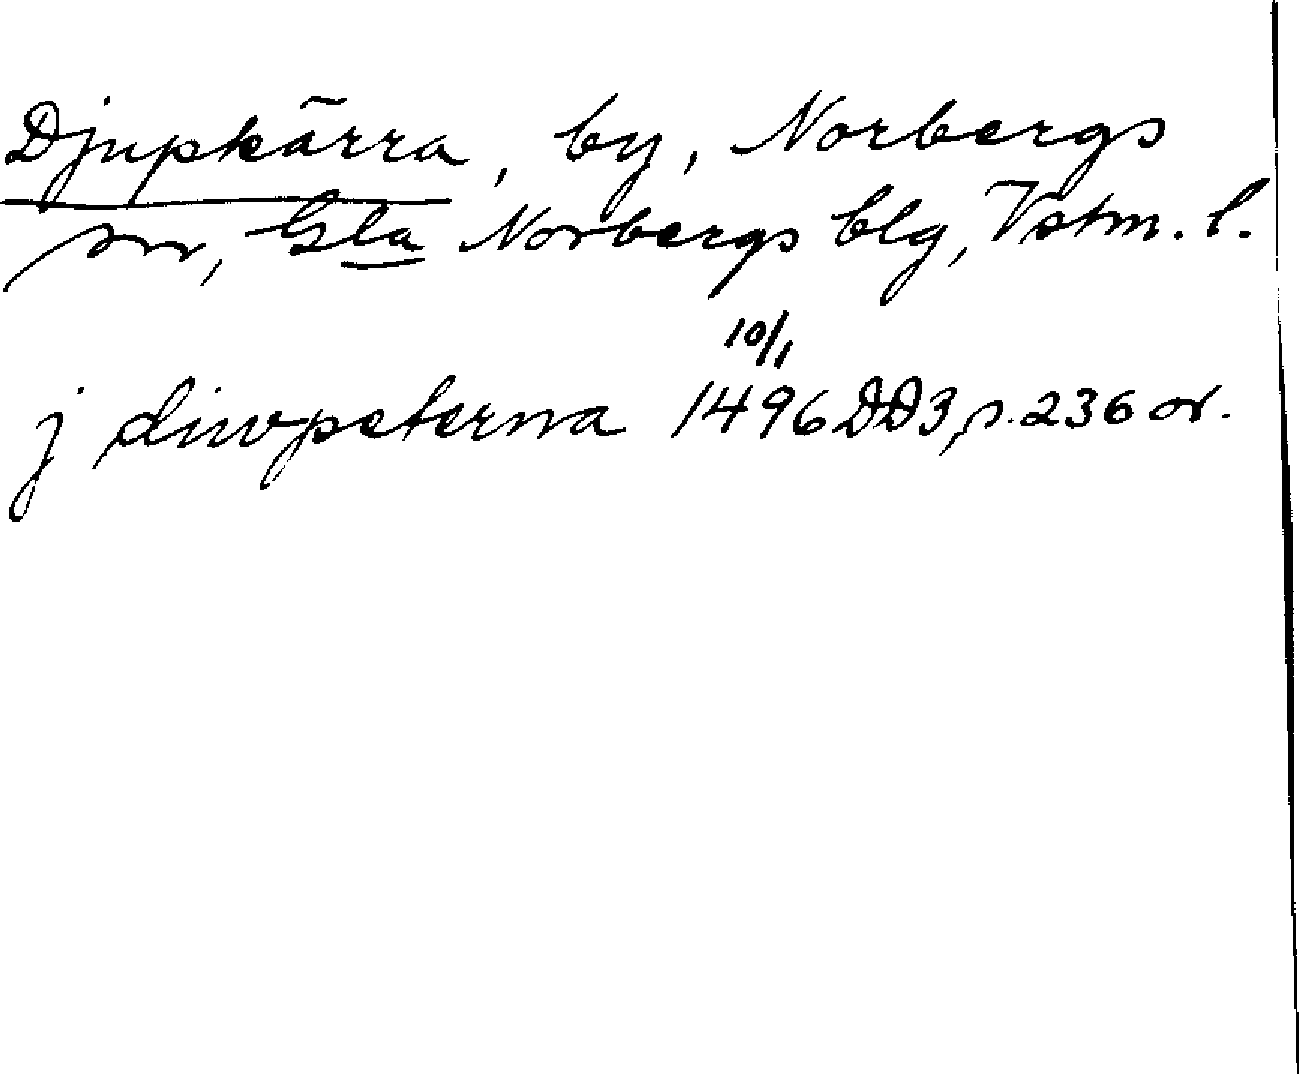 Djupkärra, by, Norbergs
sn, Gla Norbergs blg, Vstm. l.
10/1
j diwpeterna 1496 DD3, s. 236 or.